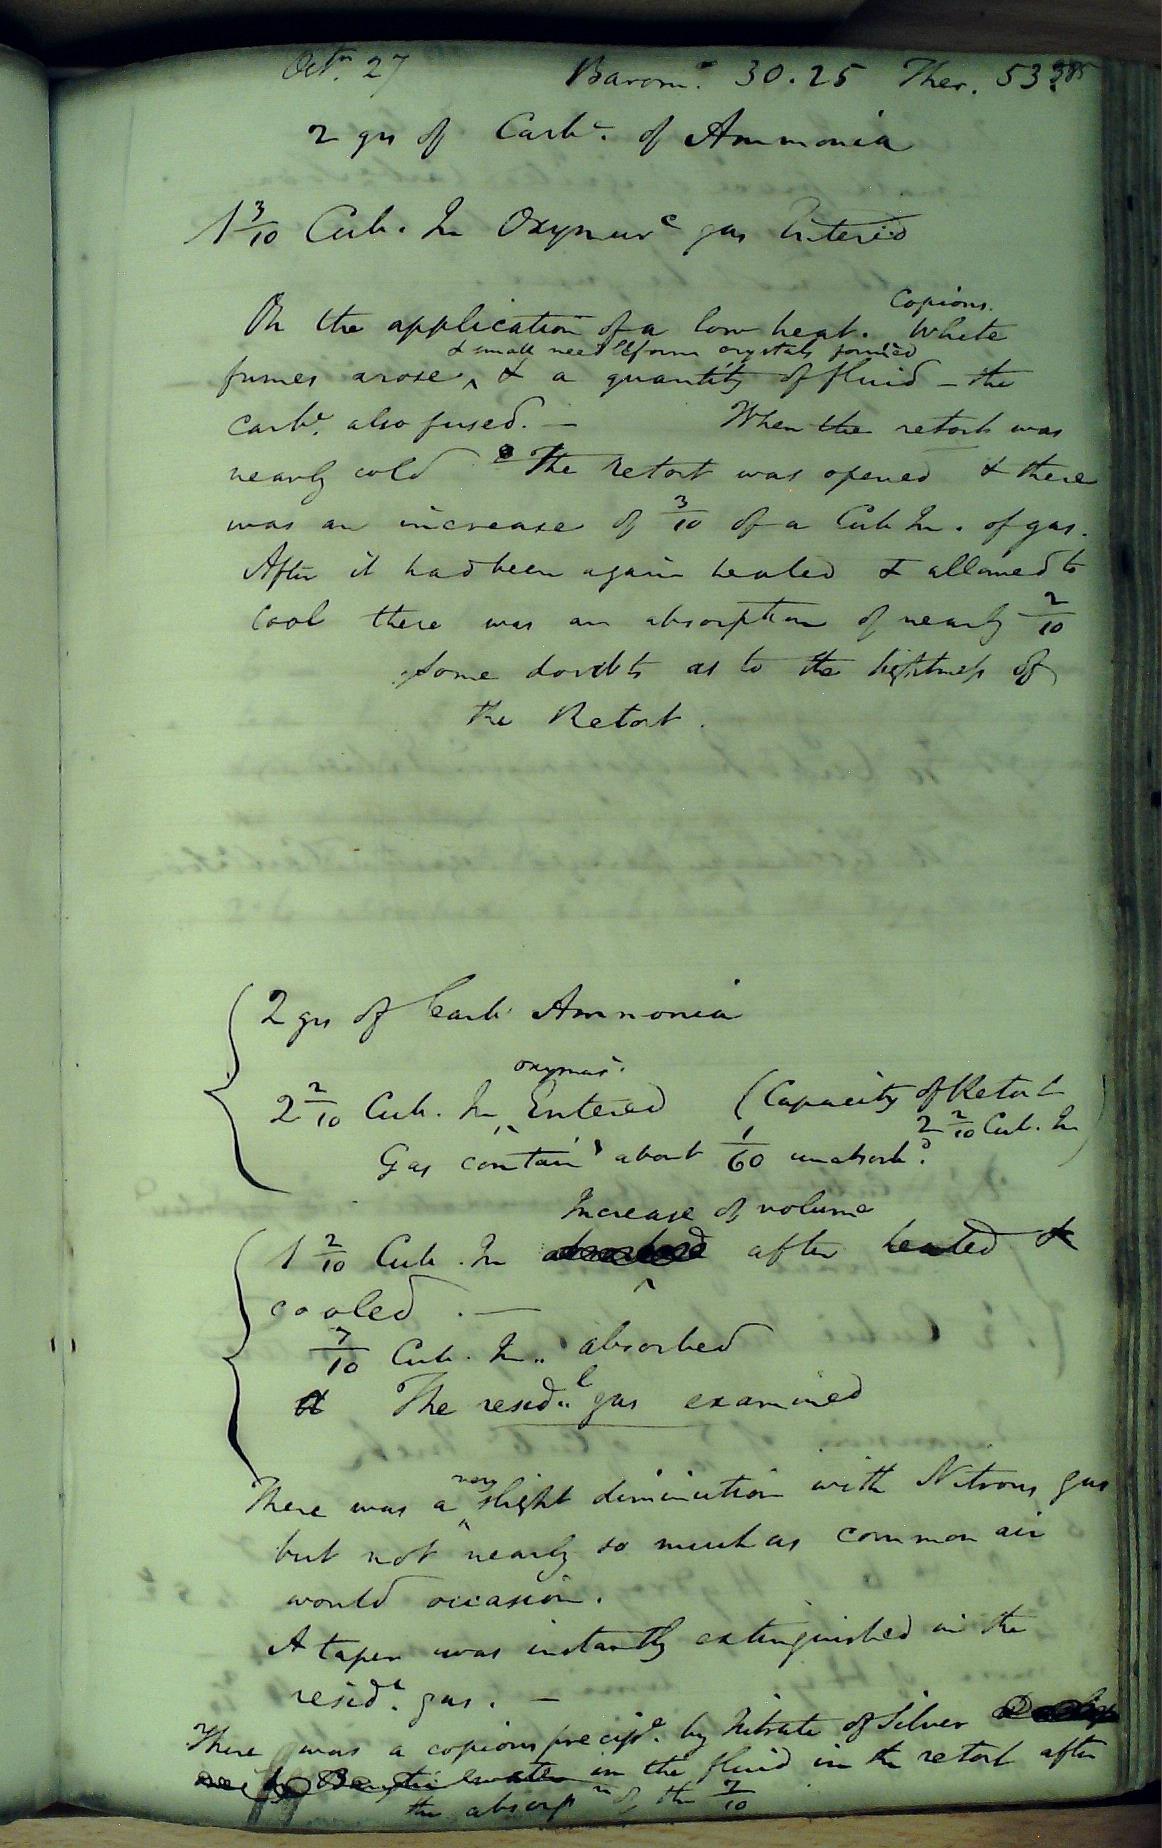 Octr. 27 Baromr. 30.25 Ther. 53.
2 grs of Carbe. of Ammonia
1 3/10 Cub. In Oxymurc gas Entered
Copious
On the application of a low heat. White
& small needleform crystals formed
fumes arose ^ & a quantity of fluid - the
carbe. also fused. — When the retort was
nearly cold The Retort was opened & there
was an increase of 3/10 of a Cub In. of gas.
After it had been again heated & allowed to
Cool there was an absorption of nearly 2/10
Some doubts as to the tightness of
the Retort.
2 grs of Carb. Ammonia
oxymur.
2 2/10 Cub. In ^ Entered (Capacity of Retort
2 2/10 Cub. In)
Gas contain'd about 1/60 unabsorbd.
Increase of volume
1 2/10 Cub. In ^ after heated &
cooled. —
7/10 Cub. In.. absorbed
The residl. gas examined
very
There was a ^ slight diminution with Nitrous gas
but not nearly so much as common air
would occasion.
A taper was instantly extinguished in the
residl. gas. —
There was a copious precipe. by Nitrate of Silver
in the fluid in the retort after
the absorpn of the 7/10